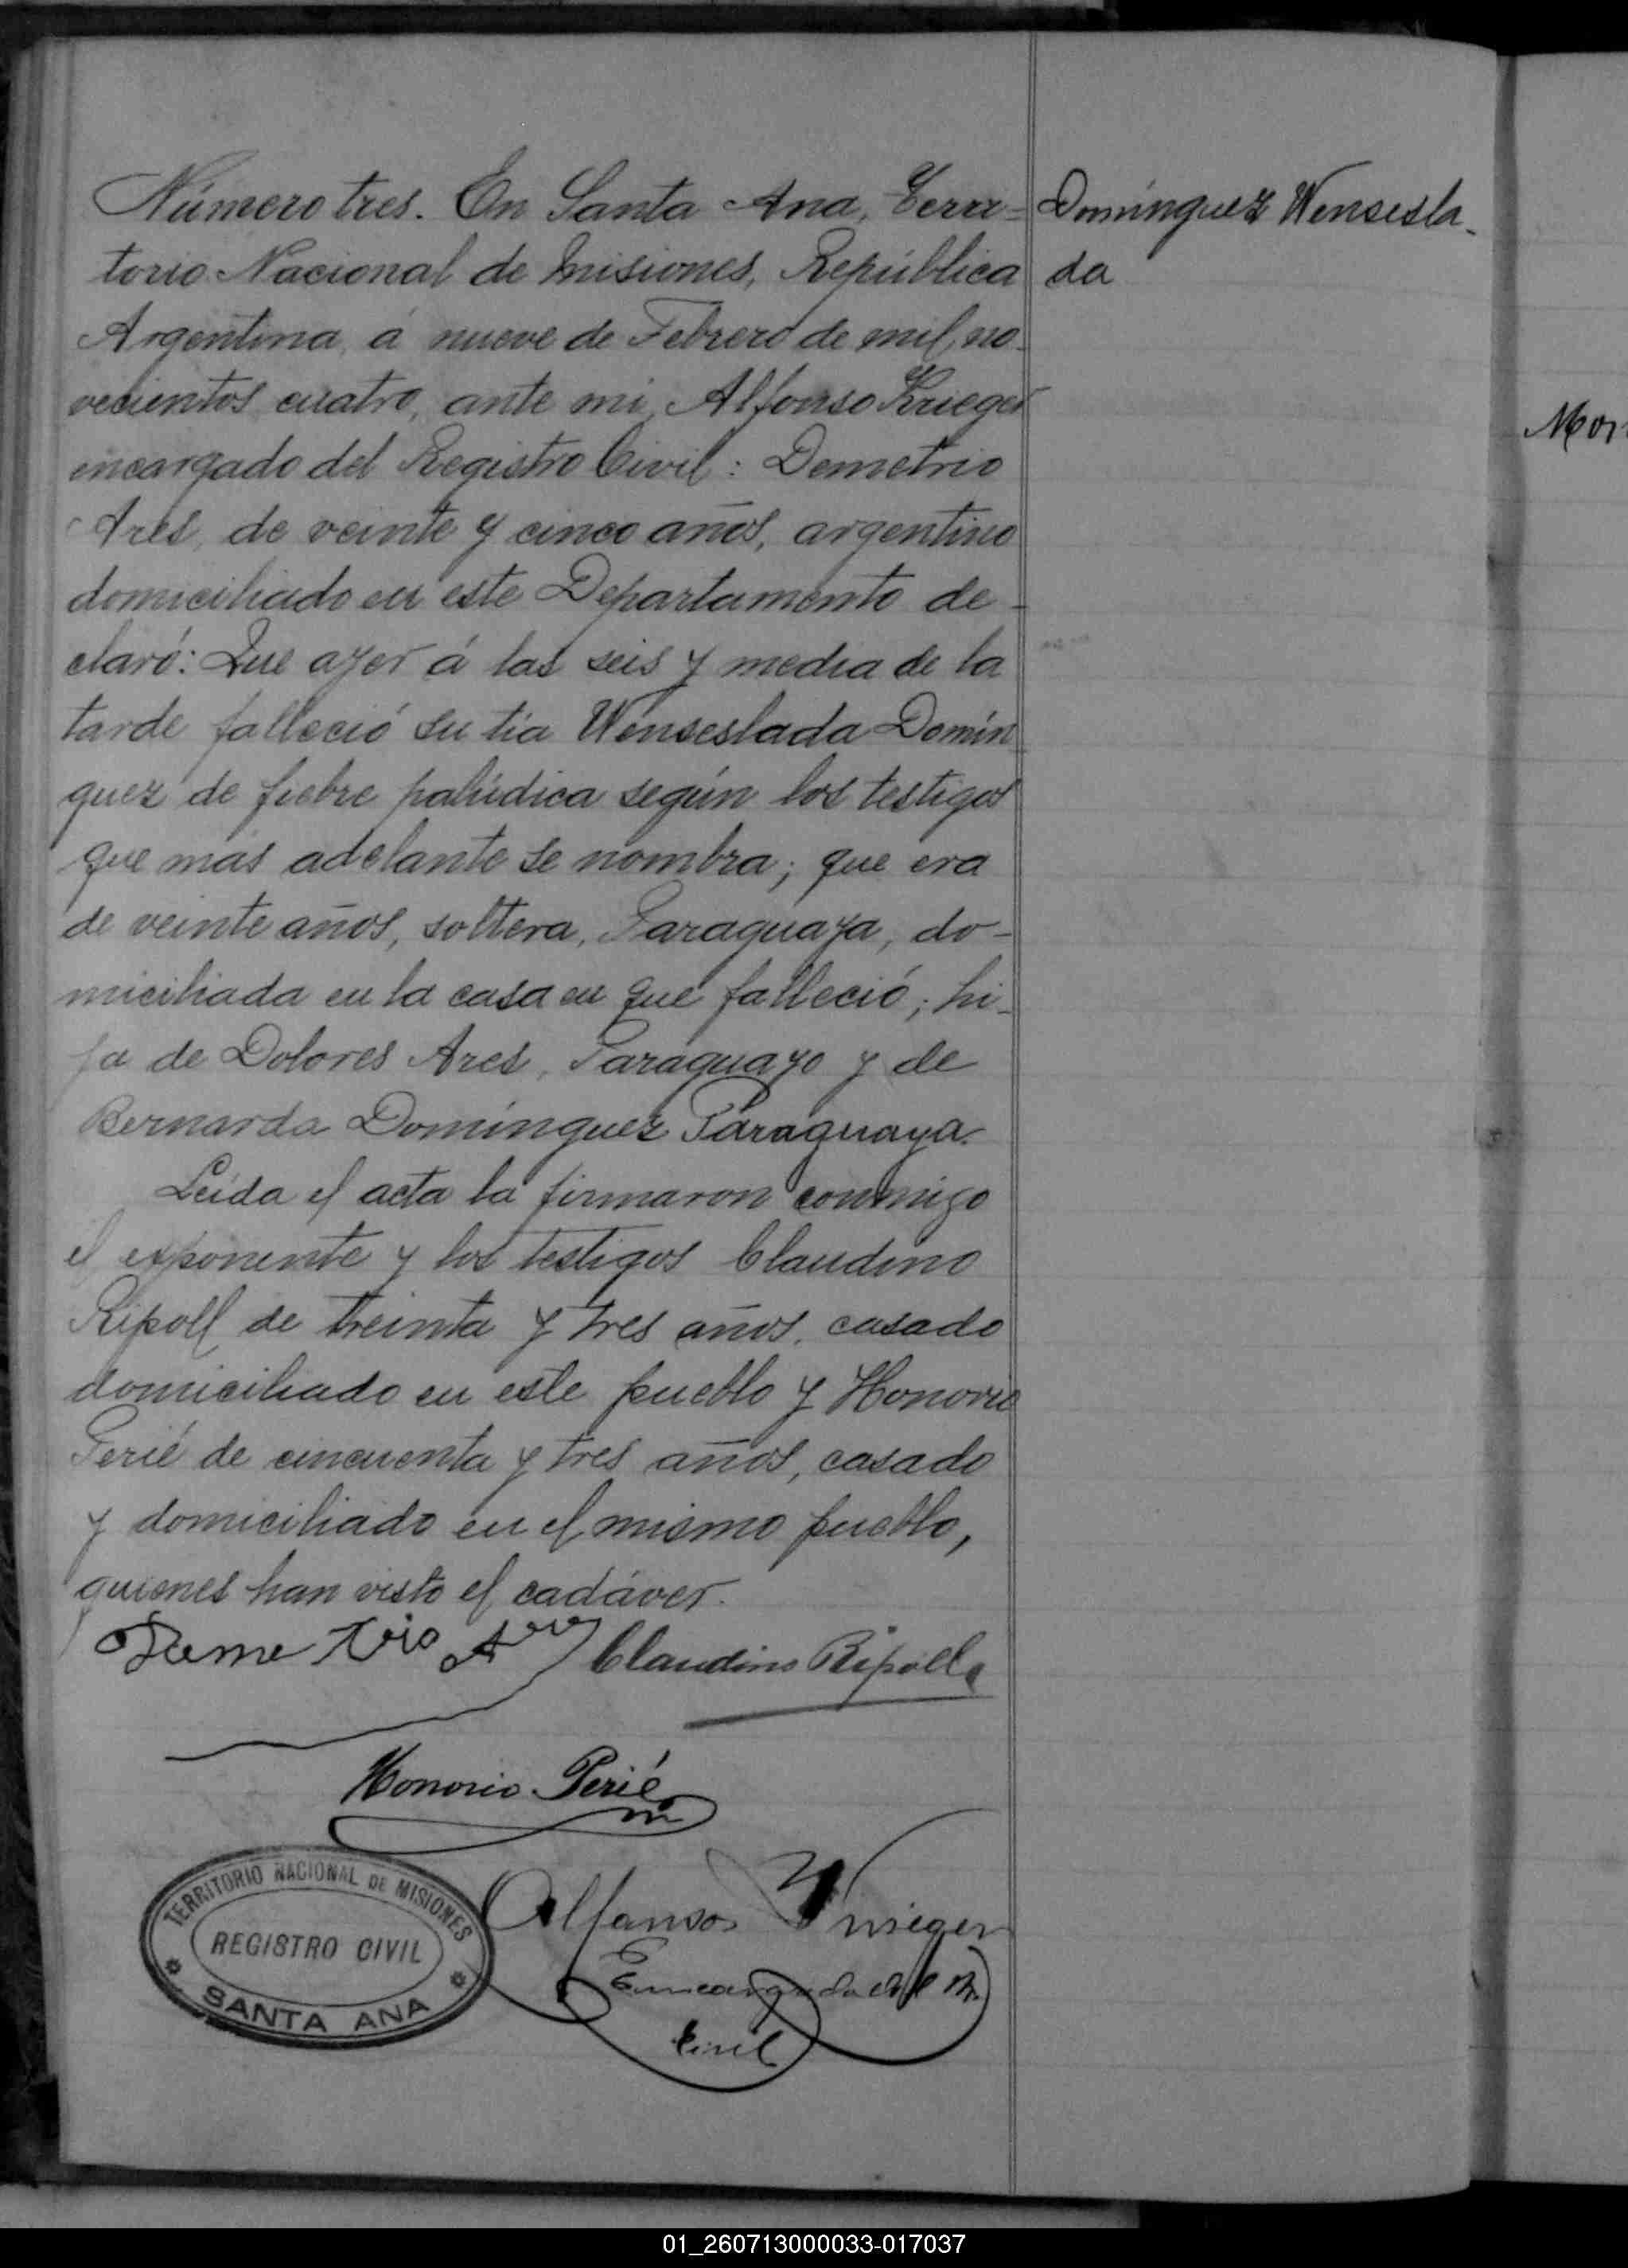 Número tres. En Santa Ana, Terri=
torio Nacional de Misiones, República
Argentina, á nueve de Febrero de mil no-
vecientos cuatro, ante mi, Alfonso Krieger
encargado del Registro Civil: Demetrio
Ares, de veinte y cinco años, argentino
domiciliado en este Departamento de-
claró: Que ayer á las seis y media de la
tarde falleció su tia Wenseslada Domín
guez de fiebre palúdica según los testigos
que mas adelante se nombra; que era
de veinte años, soltera, Paraguaya, do-
miciliada en la casa en que falleció; hi-
ja de Dolores Ares, Paraguayo y de
Bernarda Domínguez Paraguaya.
Leída el acta la firmaron conmigo
el exponente y los testigos Claudino
Ripoll de treinta y tres años, casado
domiciliado en este pueblo y Honorio
Perié de cincuenta y tres años, casado
y domiciliado en el mismo pueblo,
quienes han visto el cadáver.
Demetrio Ares Claudino Ripoll
Honorio Perié
Alfonso Krieger
Encargado del R.
Civil
TERRITORIO NACIONAL DE MISIONES
REGISTRO CIVIL
SANTA ANA
Domínguez Wensesla-
da
Mor
01_260713000033-017037